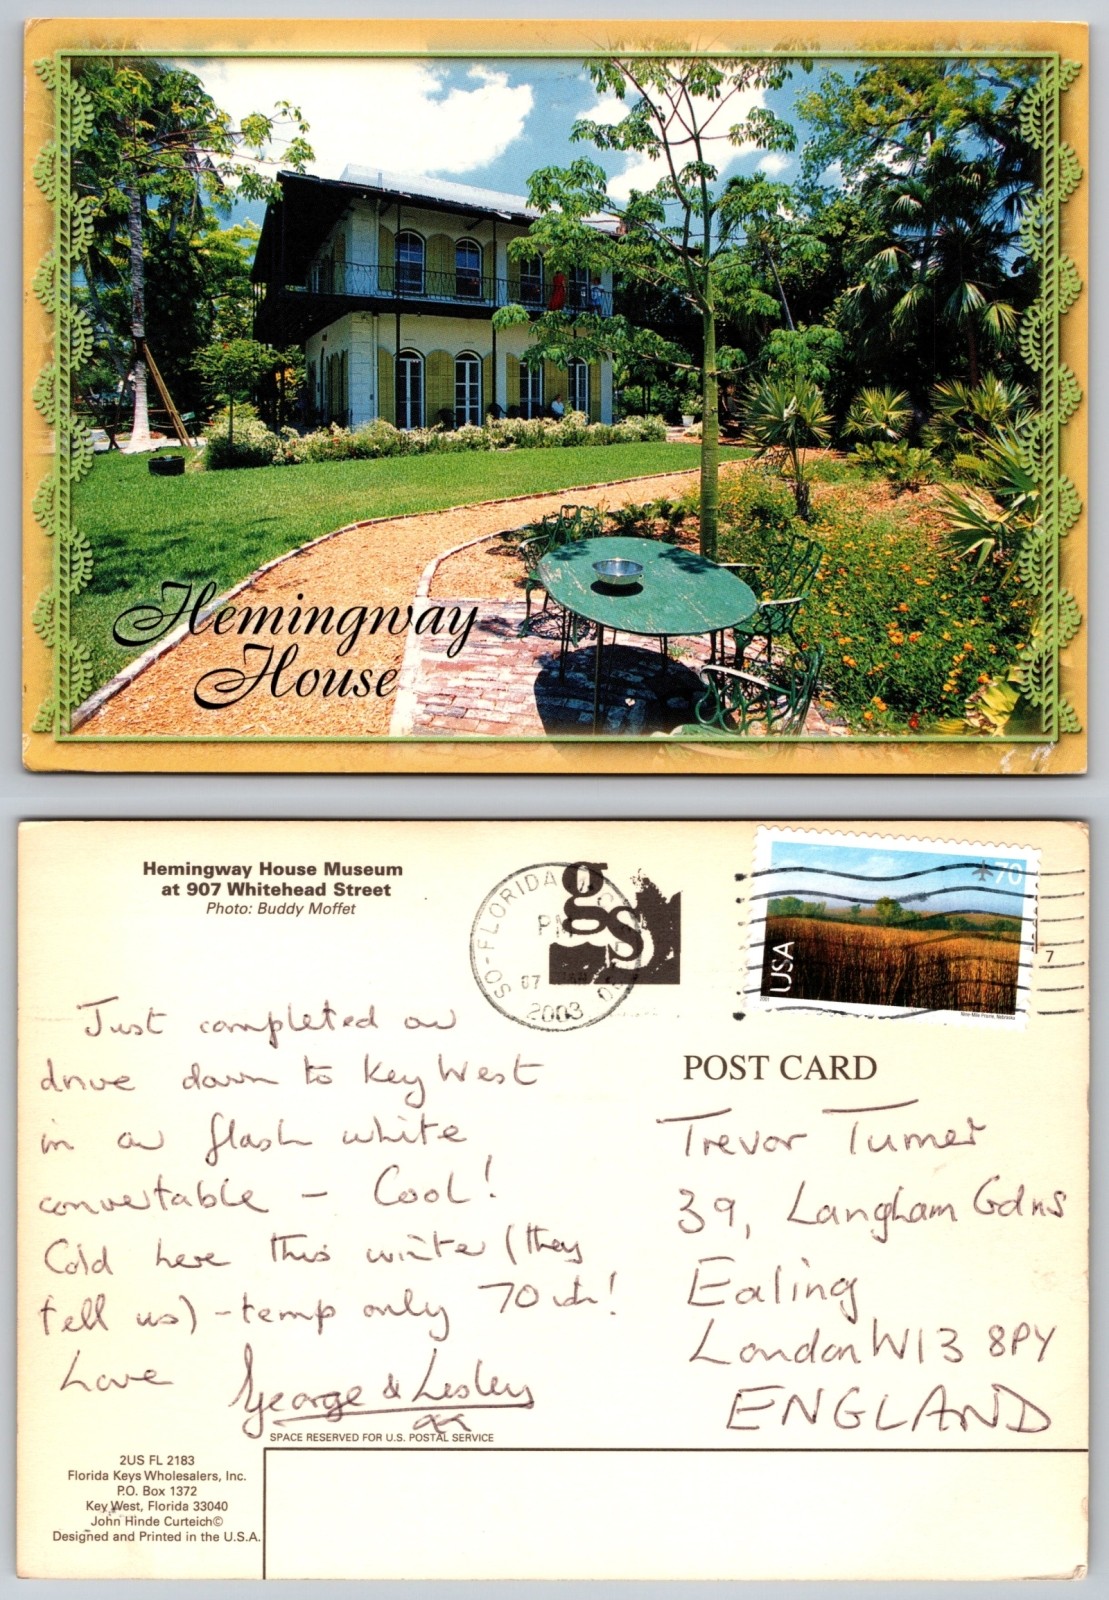 Hemingway
House
Hemingway House Museum
at 907 Whitehead Street
Photo: Buddy Moffet
SO-FLORIDA
PM
07
2003
gs
70
USA
2001
Nine-Mile Prairie, Nebraska
7
Just completed a
drive down to Key West
in a flash white
convertable – Cool!
Cold here this winter (they
tell us) - temp only 70ish!
Love George & Lesley
xx
POST CARD
Trevor Turner
39, Langham Gdns
Ealing
London W13 8PY
ENGLAND
SPACE RESERVED FOR U.S. POSTAL SERVICE
2US FL 2183
Florida Keys Wholesalers, Inc.
P.O. Box 1372
Key West, Florida 33040
John Hinde Curteich©
Designed and Printed in the U.S.A.